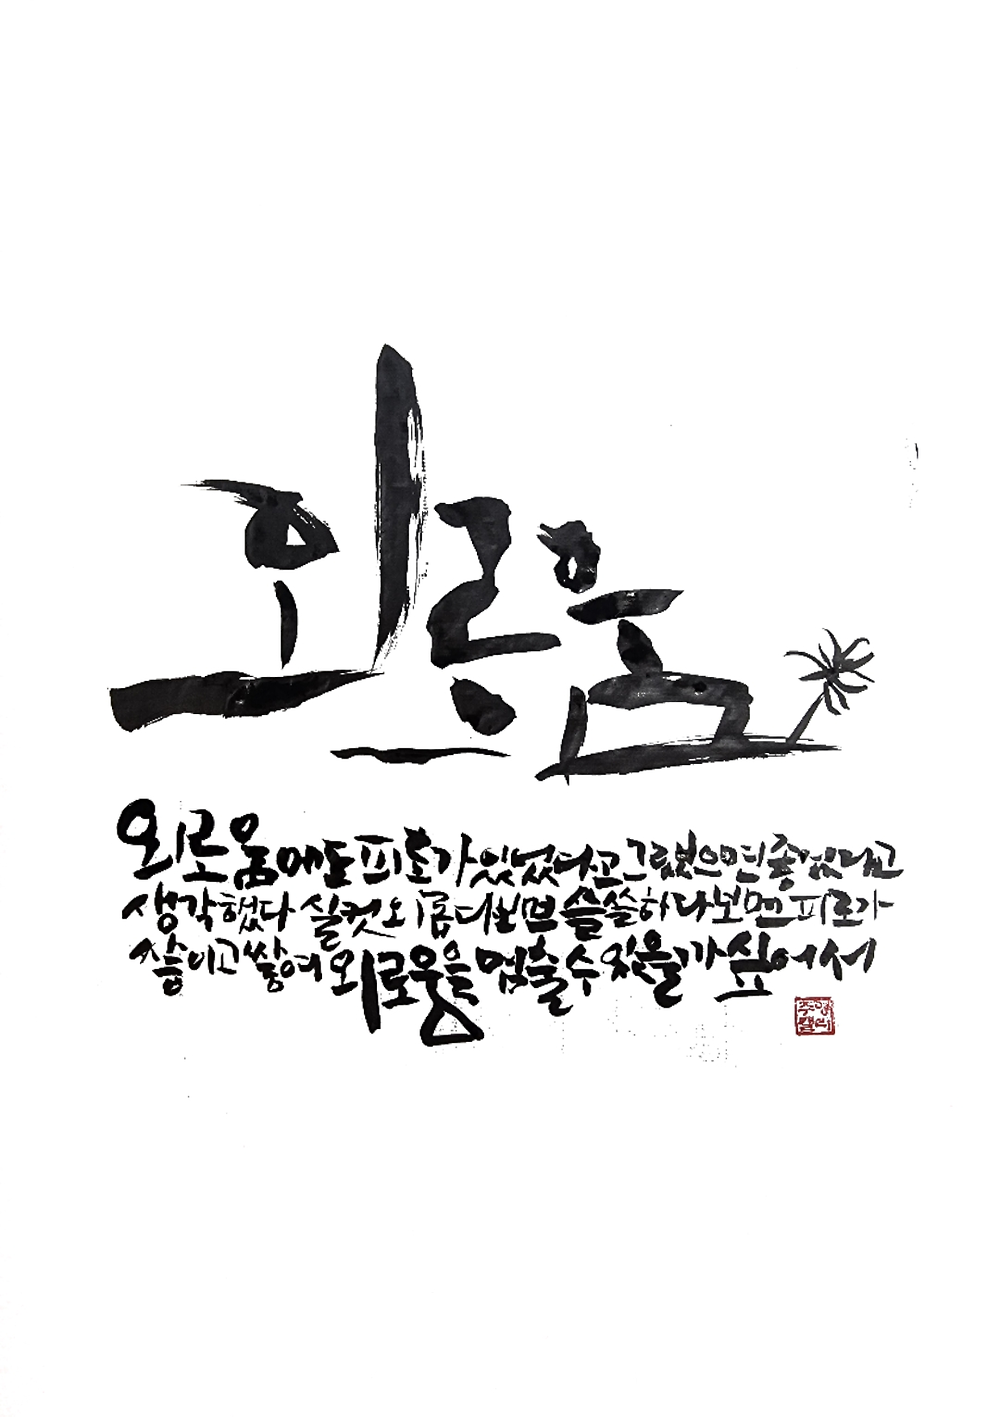 외로움
외로움에도 피로가 있었다고 그랬으면 좋겠다고
생각했다 실컷 외롭다보면 쓸쓸하다보면 피로가
쌓이고 쌓여 외로움을 멈출 수 있을까 싶어서